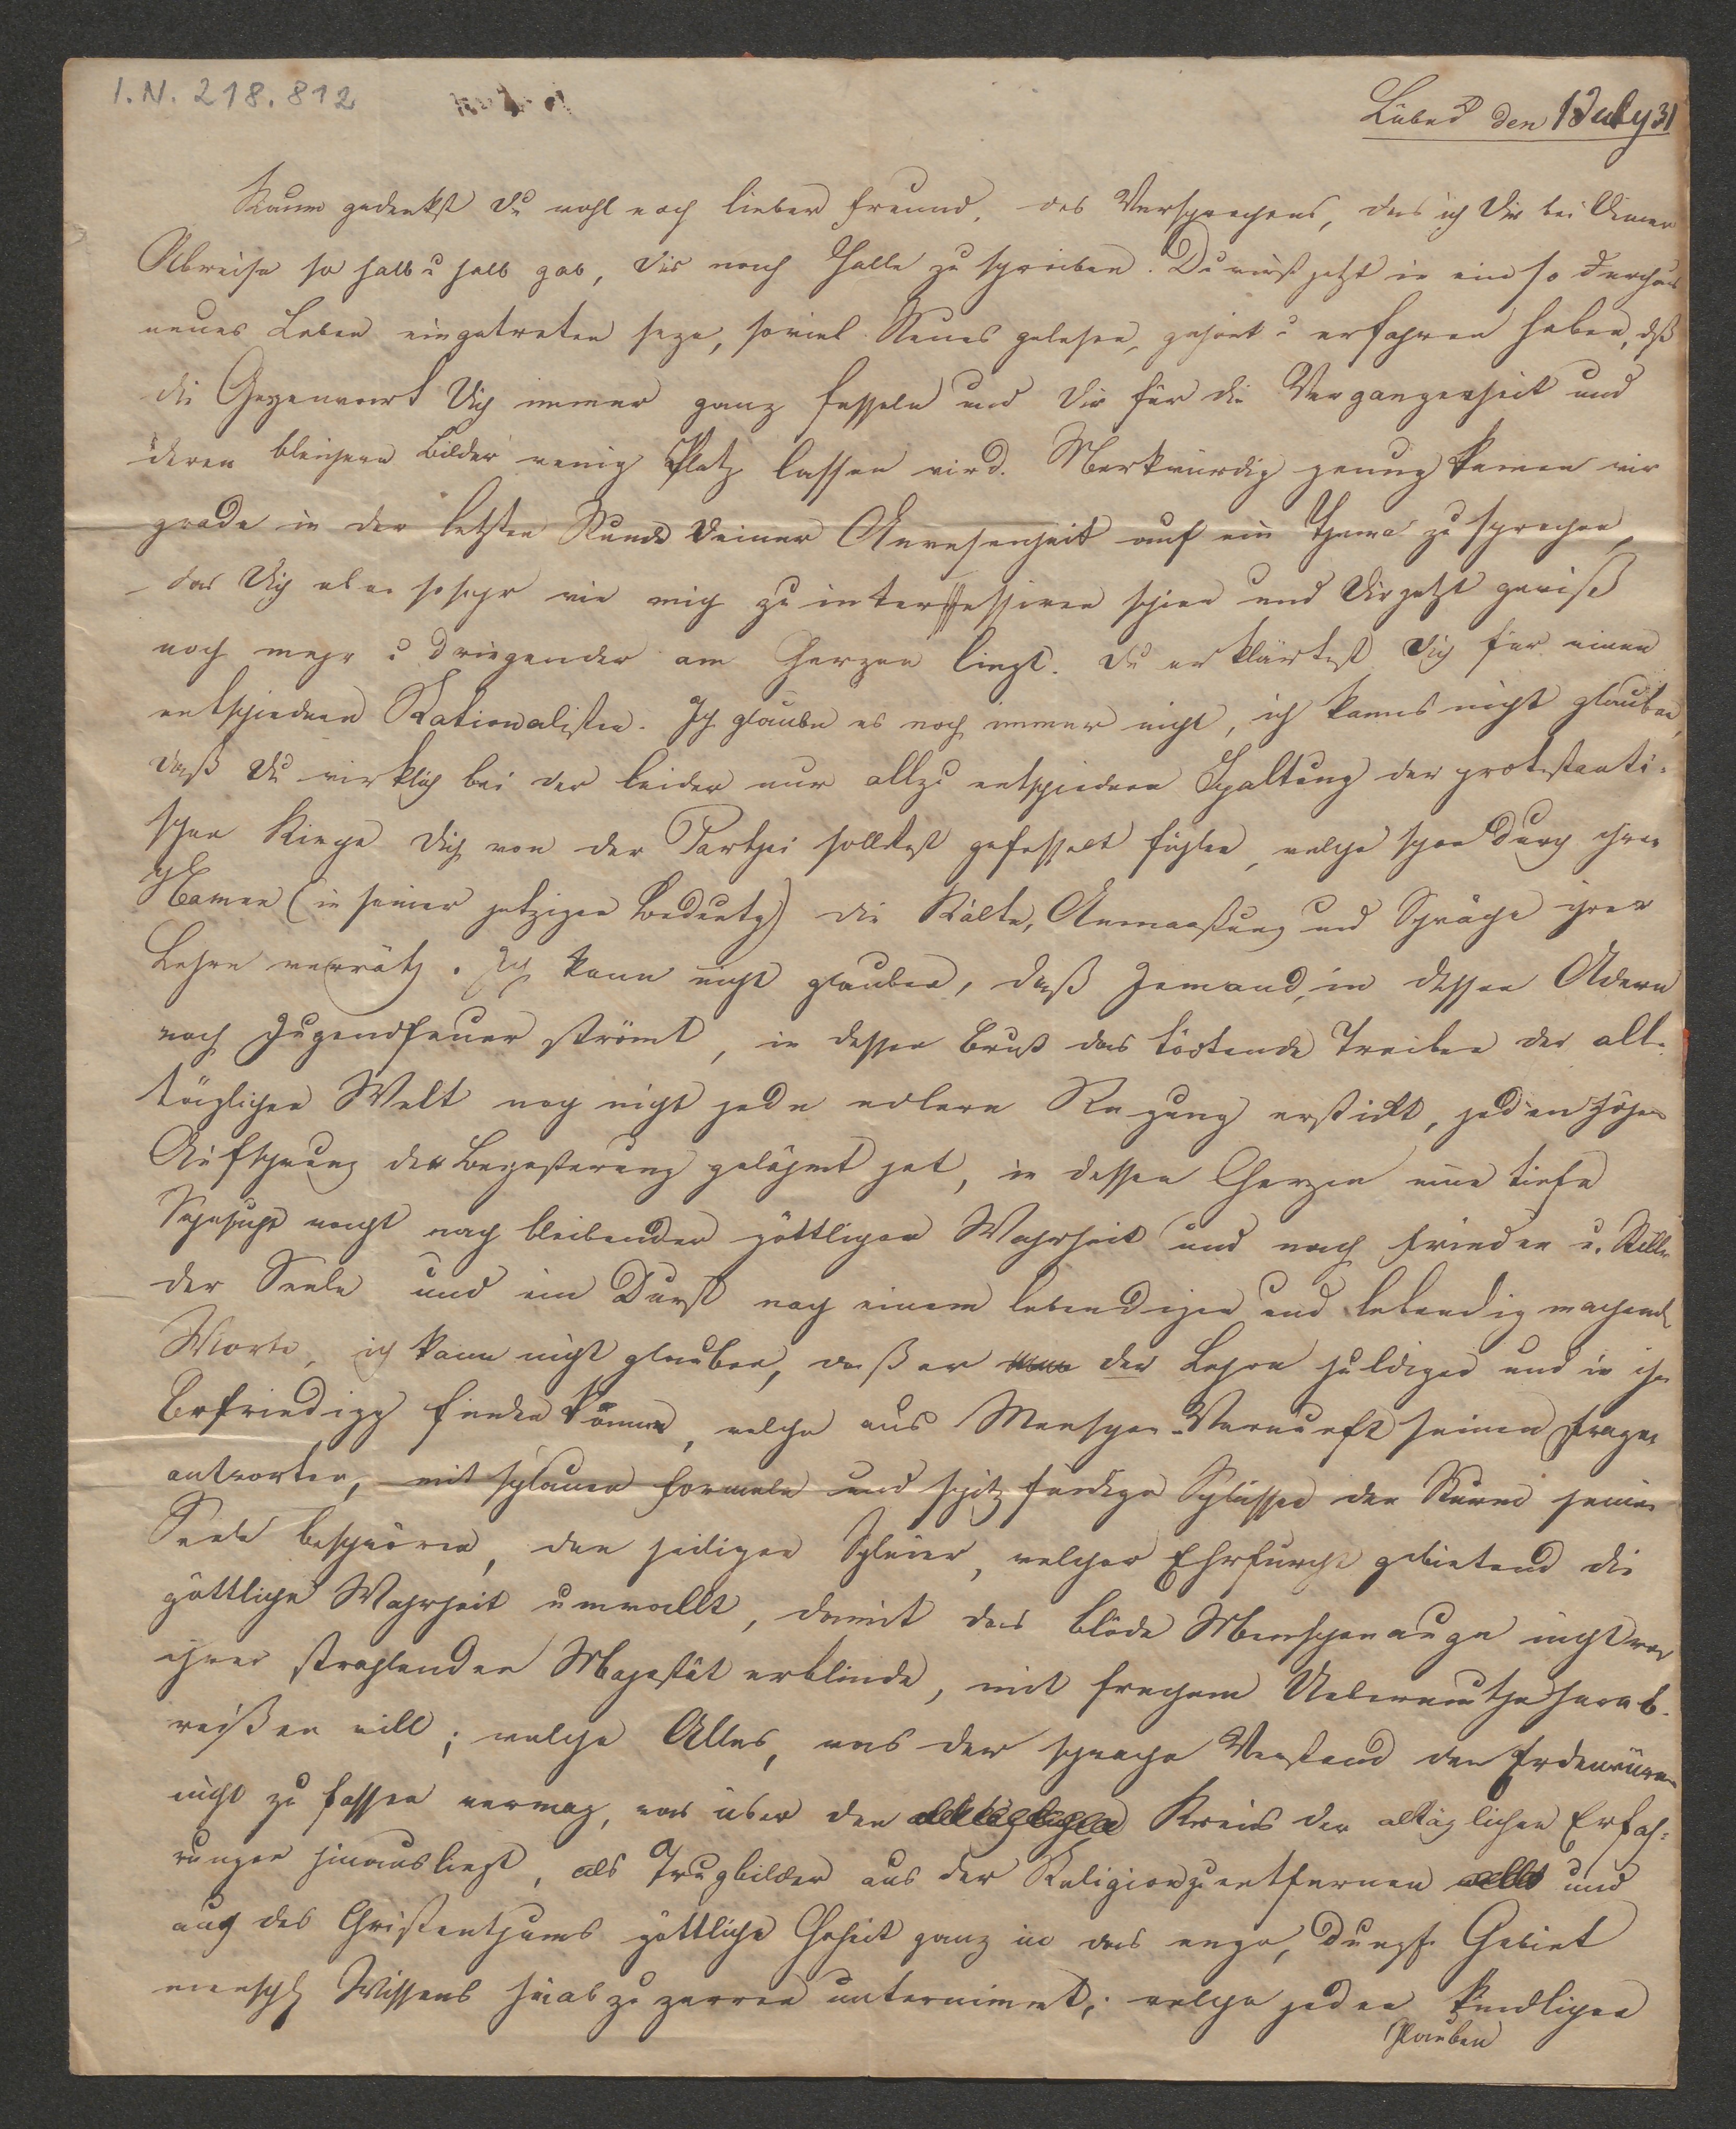 I.N. 218.812
Lübeck den 1 July 31
Kaum gedenkst Du wohl noch lieber Freund, des Versprechens, das ich Dir bei Deiner
Abreise so halb u halb gab, Dir nach Halle zu schreiben. Du wirst jetzt in ein so durchaus
neues Leben eingetreten seyn, soviel Neues gelesen, gehört u erfahren haben, dß
die Gegenwart Dich immer ganz fesseln und Dir für die Vergangenheit und
deren bleichere Bilder wenig Platz lassen wird. Merkwürdig genug kamen wir
grade in der letzten Stunde Deiner Anwesenheit auf ein Thema zu sprechen,
das Dich eben so sehr wie mich zu interessiren schien und Dir jetzt gewiß
noch mehr u dringender am Herzen liegt. Du erklärtest Dich für einen
entschiednen Rationalisten. Ich glaube es noch immer nicht, ich kanns nicht glauben,
daß Du wirklich bei der leider nur allzu entschiednen Spaltung der protestanti-
schen Kirche Dich von der Parthei solltest gefesselt fühlen, welche schon durch ihren
Namen (in seiner jetzigen Bedeutg) die Kälte, Anmaaßung und Schwäche ihrer
Lehre verräth. Ich kann nicht glauben, daß Jemand, in dessen Adern
noch Jugendfeuer strömt, in dessen Brust das tödtende Treiben der all-
täglichen Welt noch nicht jede edlere Regung erstickt, jeden höhern
Aufschwung der Begeisterung gelähmt hat, in dessen Herzen eine tiefe
Sehnsucht wacht nach bleibender göttlicher Wahrheit und nach Frieden u. Stille
der Seele und ein Durst nach einem lebendigen und lebendig machend
Worte, ich kann nicht glauben, daß er der Lehre huldigen und in ihr
Befriedigg finden könne, welche aus Menschen-Vernunft seinen Fragen
antworten, mit schlauen Formeln und spitzfindigen Schlüssen den Sturm seiner
Seele beschwören, den heiligen Schleier, welcher Ehrfurcht gebietend die
göttliche Wahrheit umwallt, damit das blöde Menschenauge nicht vor
ihrer strahlenden Majestät erblinde, mit frechem Uebermuthe herab-
reißen will; welche Alles, was der schwache Verstand der Erdenwürmer
nicht zu fassen vermag, was über den Kreis der alltäglichen Erfah-
rungen hinausliegt, als Trugbilder aus der Religion zu entfernen und
auch des Christenthums göttliche Hoheit ganz in das enge, dumpfe Gebiet
menschl Wissens hinab zu zerren unternimmt; welche jeden kindlichen
Glauben